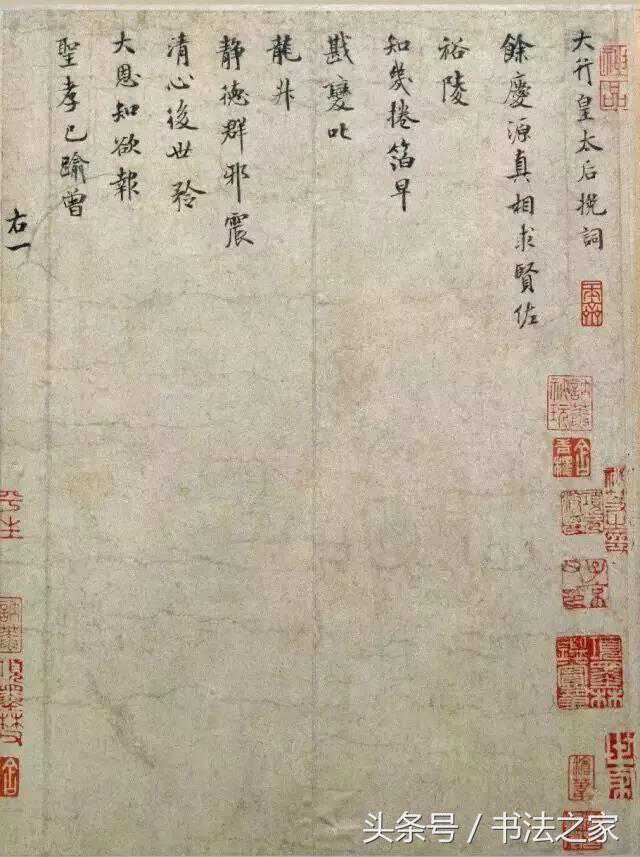 大行皇太后挽詞
餘慶源真相求賢佐
裕陵
知幾捲箔早
戡變叱
龍升
靜德群邪震
清心後世矜
大恩知欲報
聖孝已踰曾
右一
平生
項墨林
头条号／书法之家